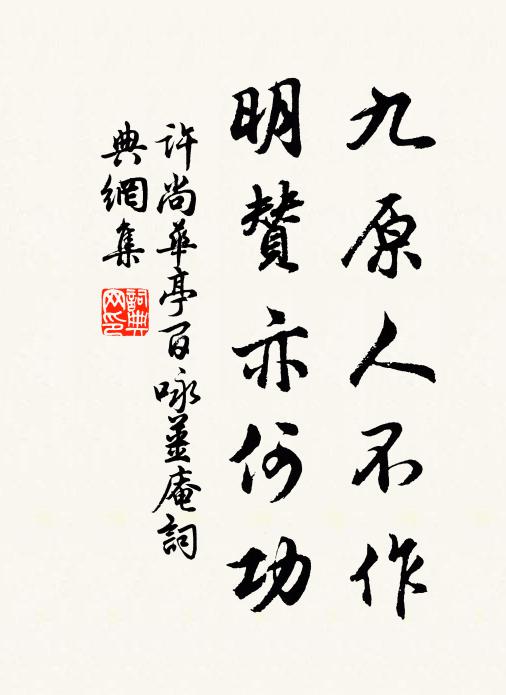 九原人不作
明贊亦何功
許尚華亭百咏薑庵詞
典網集
詞典
网印